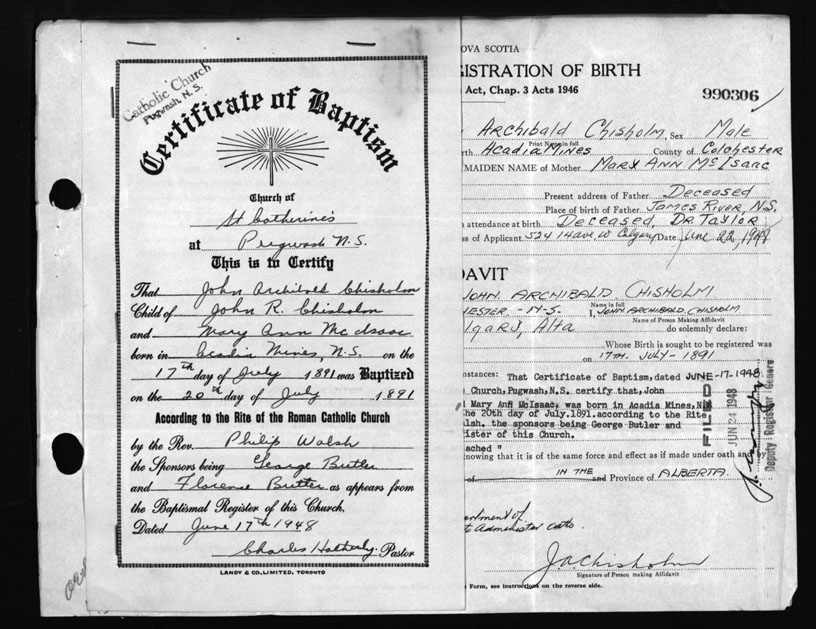 Catholic Church
Pugwash, N.S.
Certificate of Baptism
Church of
St Catherines
at Pugwash N.S.
This is to Certify
That John Archibald Chisholm
Child of John R. Chisholm
and Mary Ann McIsaac
born in Acadia Mines, N.S. on the
17th day of July 1891 was Baptized
on the 20th day of July 1891
According to the Rite of the Roman Catholic Church
by the Rev. Philip Walsh
the Sponsors being George Butler
and Florence Butler as appears from
the Baptismal Register of this Church.
Dated June 17th 1948
Charles Pastor
LANDY & CO., LIMITED, TORONTO
OVA SCOTIA
GISTRATION OF BIRTH
Act, Chap. 3 Acts 1946
990306
ARCHIBALD CHISHOLM, Sex Male
Print Name in full
rth ACADIA MINES County of COLCHESTER
MAIDEN NAME of Mother MARY ANN McISAAC
Present address of Father DECEASED
Place of birth of Father JAMES RIVER, N.S.
n attendance at birth DECEASED, DR TAYLOR
ss of Applicant 524 14 ave. W Calgary Date June 22, 1948
DAVIT
JOHN ARCHIBALD CHISHOLM
Name in full
HESTER - N-S. I, JOHN ARCHIBALD CHISHOLM
Name of Person Making Affidavit
lgary, Alta do solemnly declare:
Whose Birth is sought to be registered was
on 17TH. JULY - 1891
nstances: That Certificate of Baptism, dated JUNE-17-1948
Church, Pugwash, N.S. certify that, John
Mary Ann McIsaac, was born in Acadia Mines, N.
he 20th day of July. 1891. according to the Rite
lsh. the sponsors being George Butler and
ister of this Church.
ached "
nowing that it is of the same force and effect as if made under oath and by
of IN THE and Province of ALBERTA.
FILED
JUN 24 1948
Deputy Registrar General
artment of
to Administer Oaths.
J A Chisholm
Signature of Person making Affidavit
Form, see instructions on the reverse side.